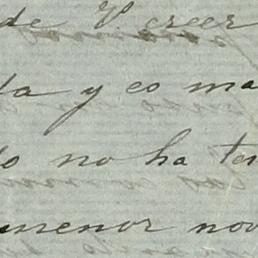 de V creer
da y eo ma
to no ha te
menor nov